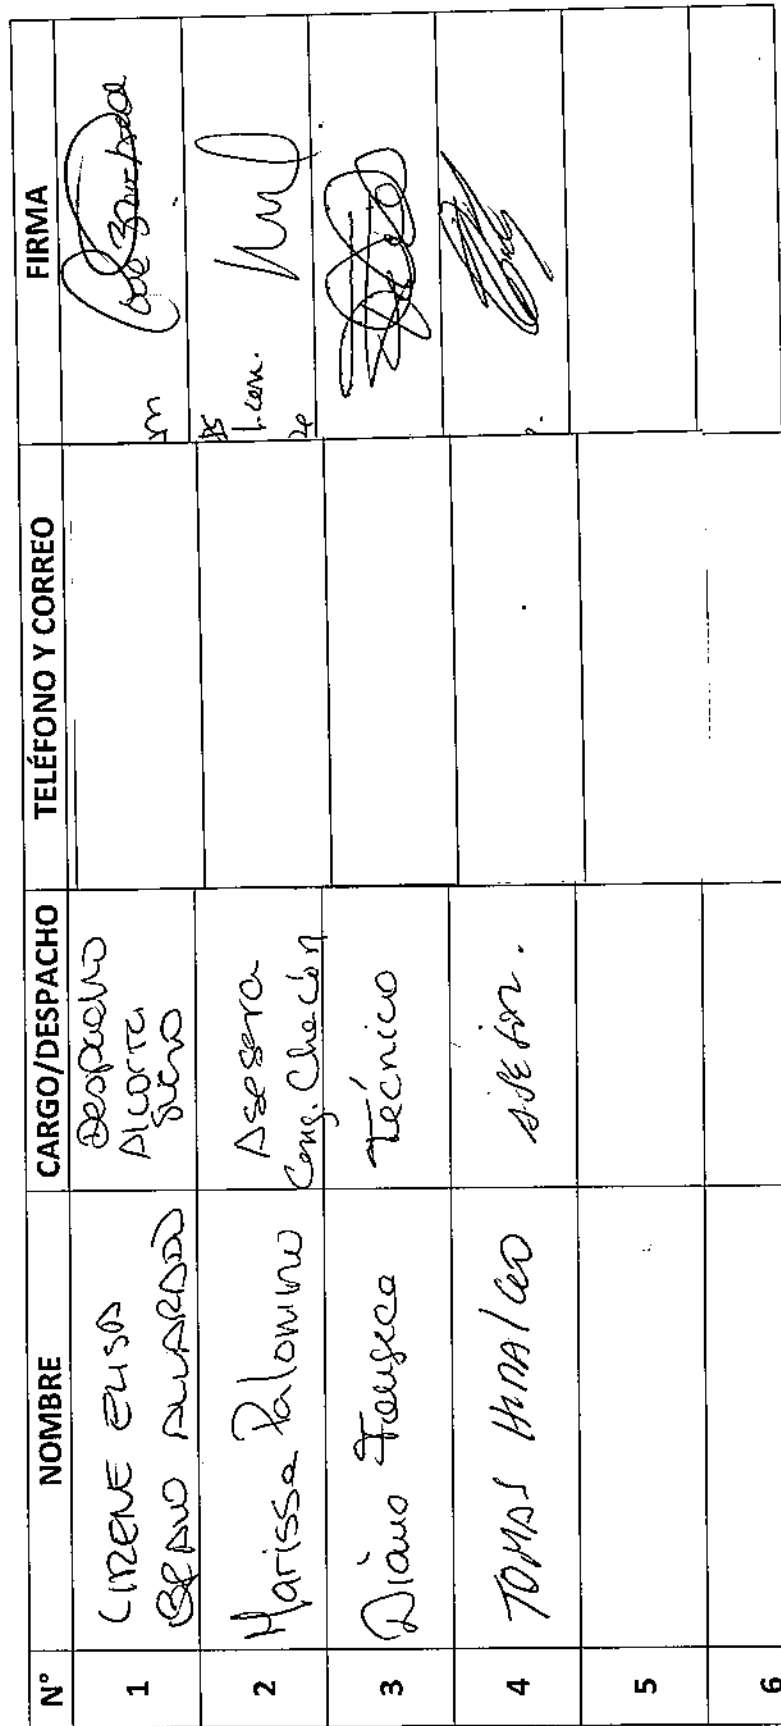 N° NOMBRE CARGO/DESPACHO TELÉFONO Y CORREO FIRMA
1 CIRENE ELISA Despacho
BEDN ALVARADO Alcorta
Sucno
2 Marissa Palomino Asesora
Cong. Chacón
3 Diana Fonseca Técnico
4 TOMAS HIDALGO ASESOR.
5
6